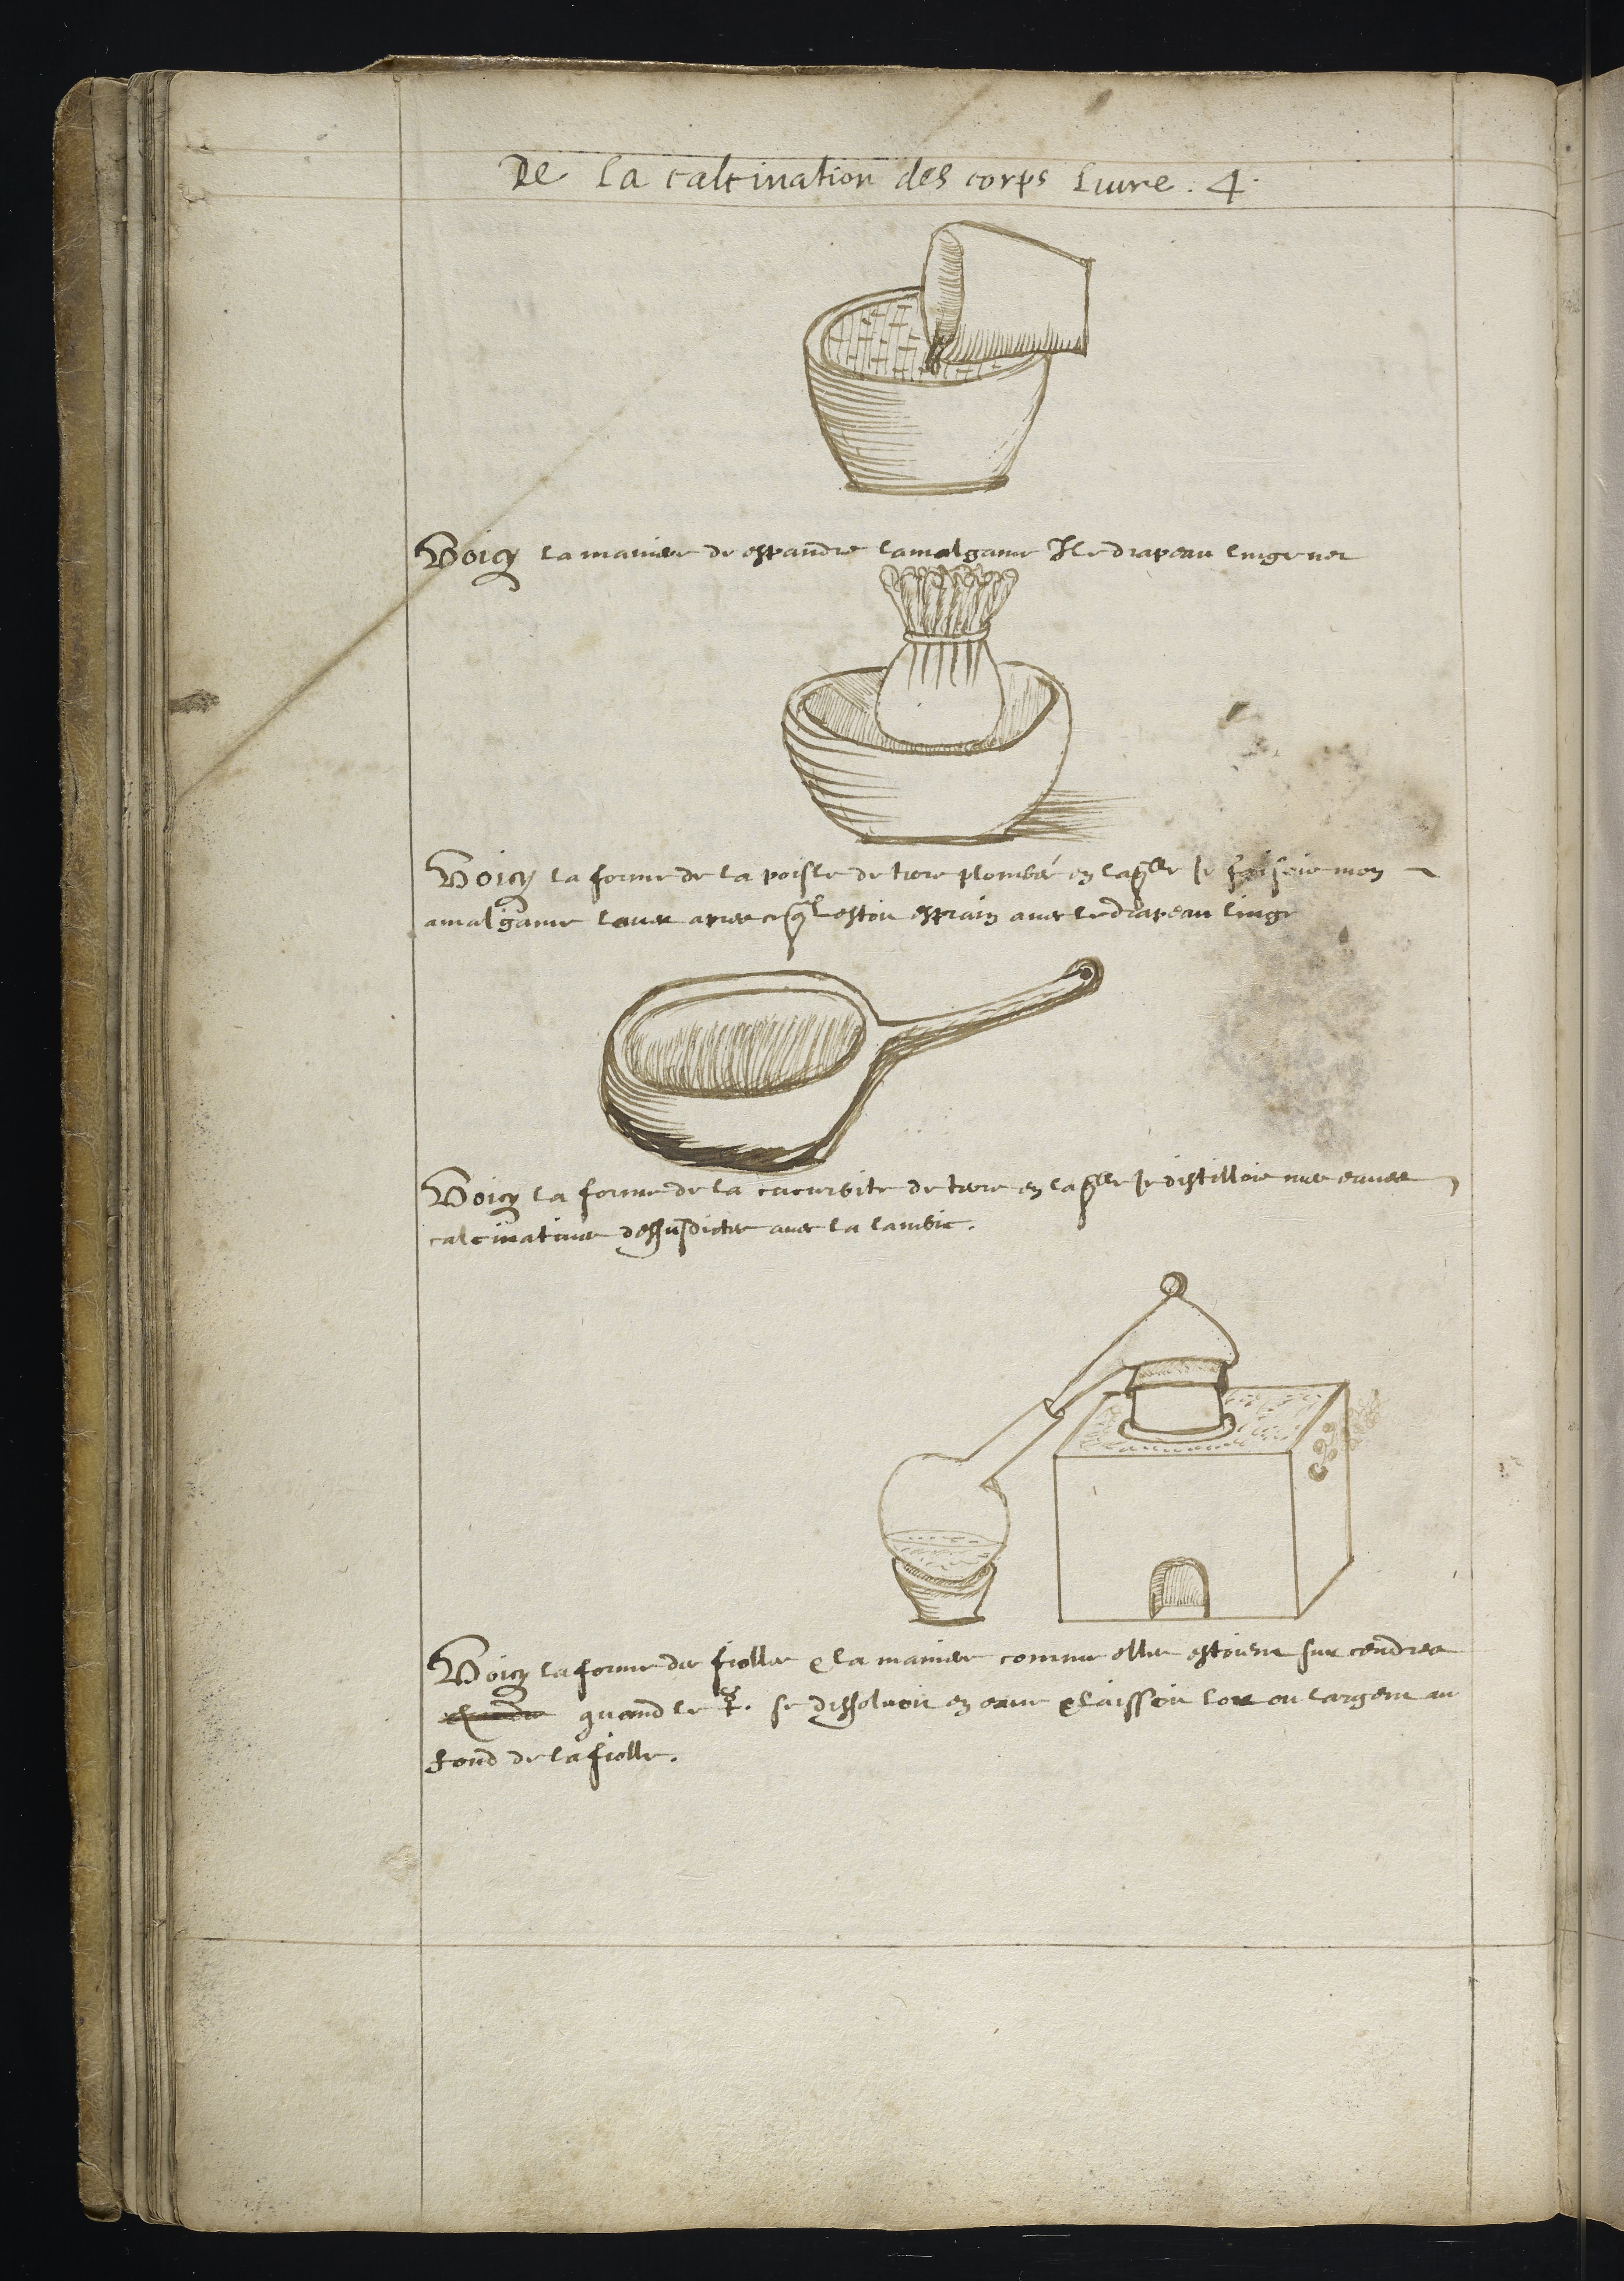 De la calcination des corps Liure . 4 .
Voicy la maniere de espandre lamalgame le drapeau linge
Voicy la forme de la poisle de terre plombé en laqlle Je faisoie mon
amalgame lauer apres estoit esprain auec le drapeau linge
Voicy la forme de la cucurbite de terre en laqlle Je distilloie mes eaues
calcinatiues dessusdictes auec la lambic .
Voicy la forme des fiolles & la maniere comme elles estoient sur cendres
quand le ☿ . se dissoluoit en eaue & laissoit lor ou largent au
fond de la fiolle .